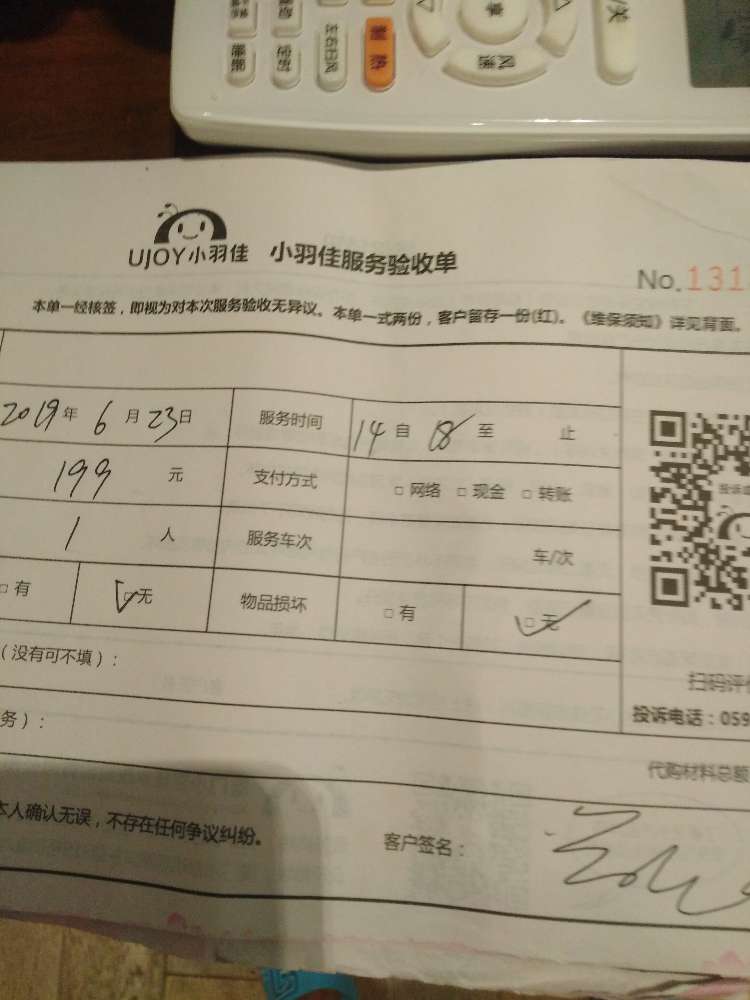 睡眠
定时
左右扫风
制热
风速
UJOY小羽佳 小羽佳服务验收单
No.131
本单一经核签，即视为对本次服务验收无异议。本单一式两份，客户留存一份(红)。《维保须知》详见背面。
2019年6月23日 服务时间 14自18至 止
199元 支付方式 □网络 □现金 □转账
1人 服务车次 车/次
□有 □无 物品损坏 □有 □无
（没有可不填）：
务）：
扫码评价
投诉电话：059
代购材料总额
本人确认无误，不存在任何争议纠纷。
客户签名：